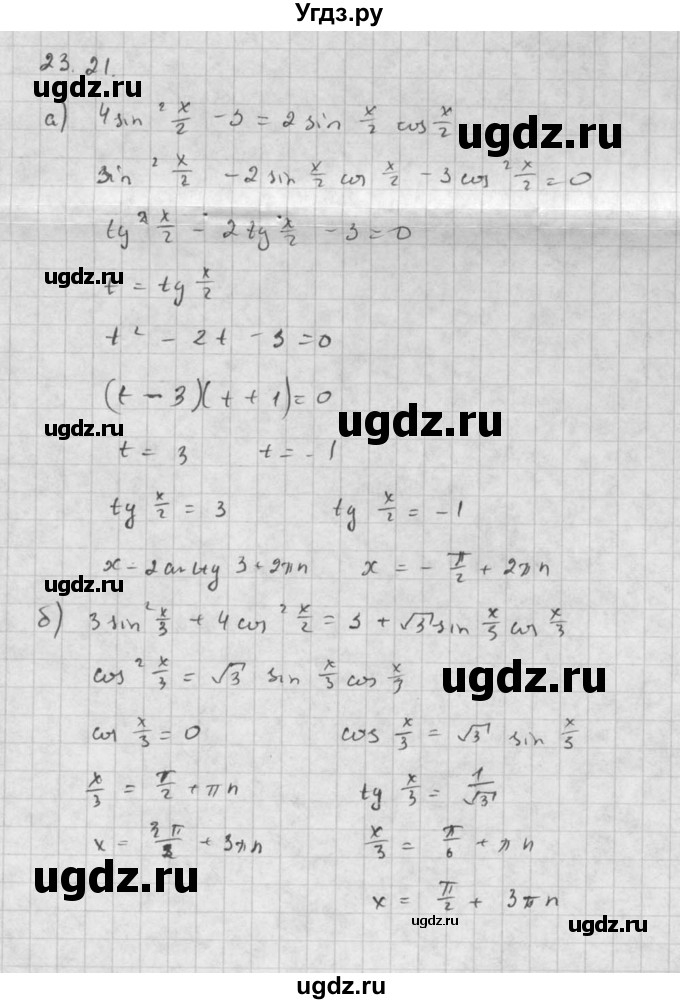 Угдз.ру
23.21.
ugdz.ru
а) 4 sin² x/2 - 3 = 2 sin x/2 cos x/2
ugdz.ru
sin² x/2 - 2 sin x/2 cos x/2 - 3 cos² x/2 = 0
tg² x/2 - 2 tg x/2 - 3 = 0
ugdz.ru
t = tg x/2
t² - 2t - 3 = 0
(t - 3)(t + 1) = 0
ugdz.ru
ugdz.ru
t = 3 t = -1
tg x/2 = 3 tg x/2 = -1
x = 2 arctg 3 + 2πn x = - π/2 + 2πn
б) 3 sin² x/3 + 4 cos² x/2 = 3 + √3 sin x/3 cos x/3
cos² x/3 = √3 sin x/3 cos x/3
ugdz.ru
cos x/3 = 0 cos x/3 = √3 sin x/3
x/3 = π/2 + πn tg x/3 = 1/√3
x = 3π/2 + 3πn x/3 = π/6 + πn
ugdz.ru
x = π/2 + 3πn
ugdz.ru
ugdz.ru
ugdz.ru